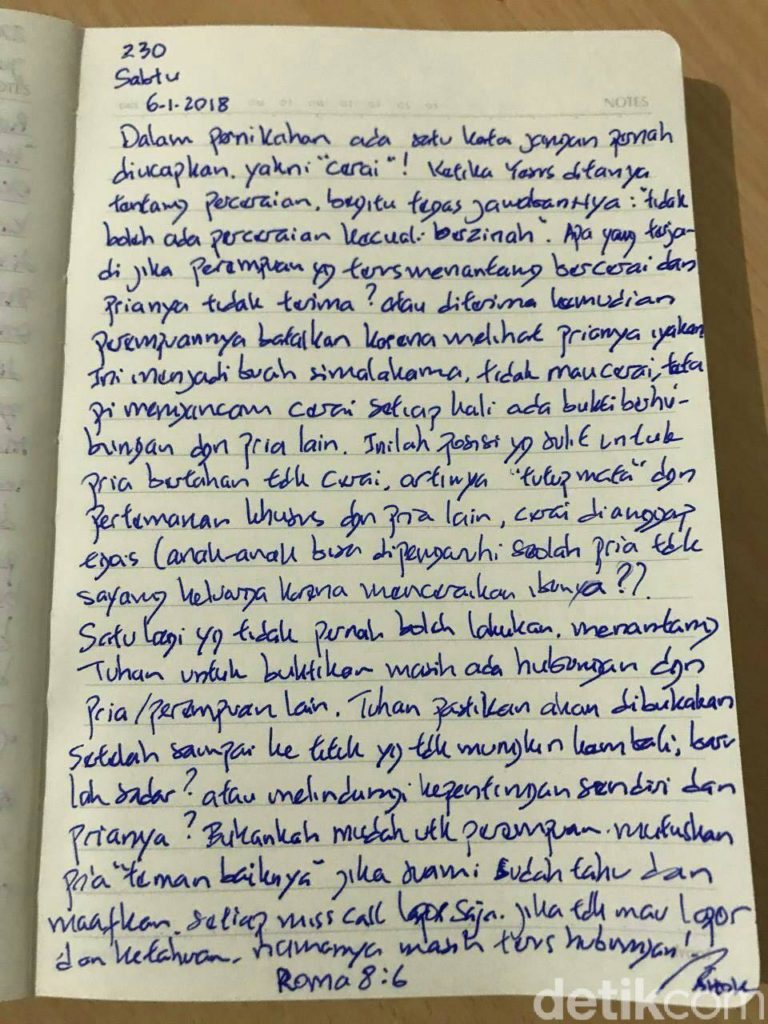 230
Sabtu
6-1-2018
NOTES
Dalam pernikahan ada satu kata jangan pernah
diucapkan, yakni "cerai"! Ketika Yesus ditanya
tentang perceraian, begitu tegas jawabannya: "tidak
boleh ada perceraian kecuali berzinah". Apa yang terja-
di jika perempuan yg terus menantang bercerai dan
prianya tidak terima? atau diterima kemudian
perempuannya batalkan karena melihat prianya iyakan
Ini menjadi buah simalakama, tidak mau cerai, teta
pi mengancam cerai setiap kali ada bukti berhu-
bungan dgn pria lain. Inilah posisi yg sulit untuk
pria bertahan tdk cerai, artinya "tutup mata" dgn
pertemanan khusus dgn pria lain, cerai dianggap
egois (anak-anak bisa dipengaruhi seolah pria tdk
sayang keluarga karena menceraikan ibunya??
Satu lagi yg tidak pernah boleh lakukan, menantang
Tuhan untuk buktikan masih ada hubungan dgn
pria/perempuan lain. Tuhan pastikan akan dibukakan
setelah sampai ke titik yg tdk mungkin kembali, baru
lah sadar? atau melindungi kepentingan sendiri dan
prianya? Bukankah mudah utk perempuan mutuskan
pria "teman baiknya" jika suami sudah tahu dan
maafkan, setiap miss call lapor saja. jika tdk mau lapor
dan ketahuan, namanya masih terus hubungan!
Roma 8:6
detikcom